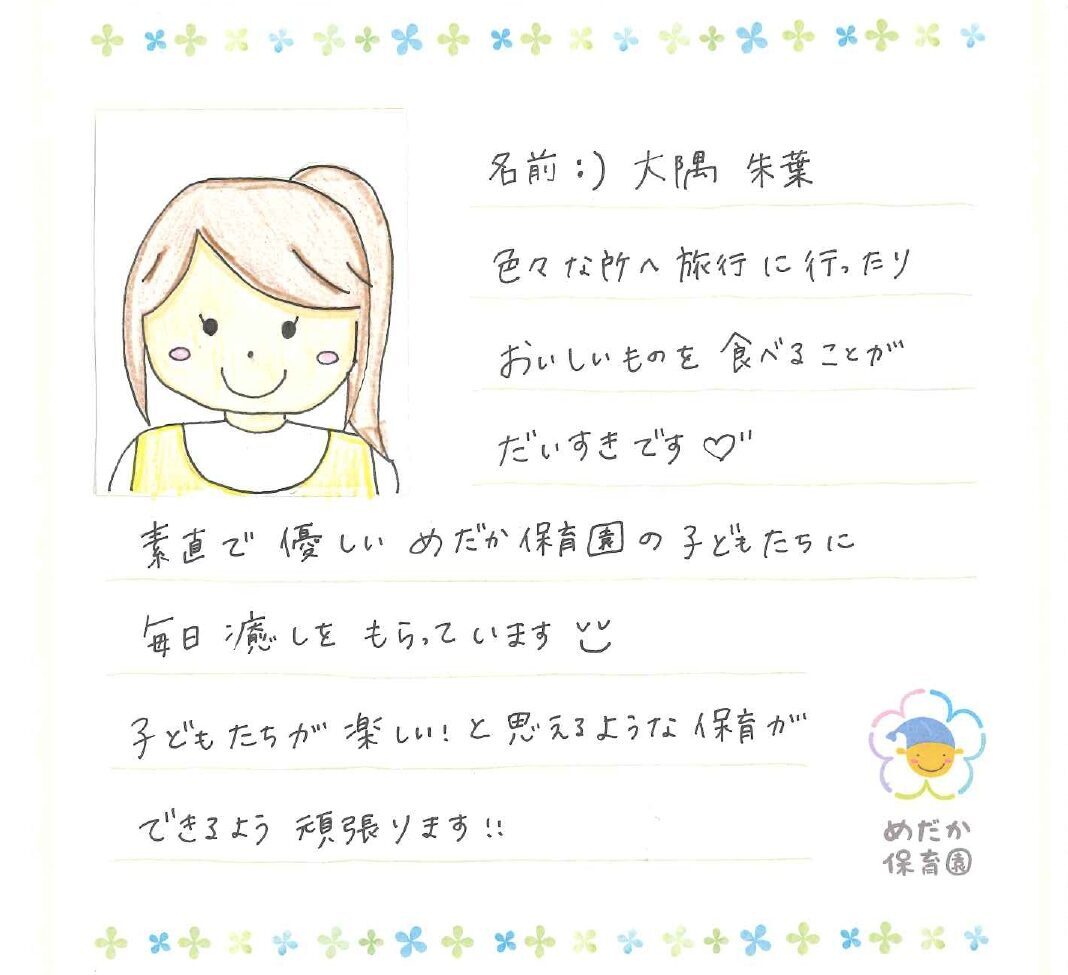 名前:) 大隅 朱葉
色々な所へ旅行に行ったり
おいしいものを食べることが
だいすきです♡"
素直で優しいめだか保育園の子どもたちに
毎日癒しをもらっています
子どもたちが楽しい!と思えるような保育が
できるよう頑張ります!!
めだか
保育園